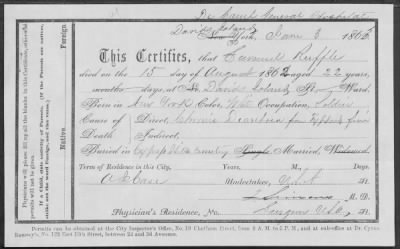 Davids Island
New York, Jany 3 1863
This Certifies, that Samuel Ruffle
died on the 15 day of August 1862 aged 22 years,
months days, at Davids Island Ward.
Born in New York Color, White Occupation, Soldier
Cause of Direct, Chronic Diarrhea
Death Indirect,
Buried in Cypress Hills Cemetery Single, Married, Widowed.
Term of Residence in this City,
Undertaker, U.S.A
M. D.
Physician's Residence, No. Surgeon U.S.A. St.
Permits can be obtained at the City Inspector's Office, No. 10 Chatham Street, from 8 A. M. to 5 P. M., and at out-office at Dr. Cyrus
Ramsey's, No. 122 East 13th Street, between 2d and 3d Avenues.
Foreign.
Native.
Physicians will please fill up all the blanks in this Certificate, otherwise
permits will not be given.
If a Child, state nativity of Parents. (If the Parents are native,
strike out the word Foreign, and the vice.)